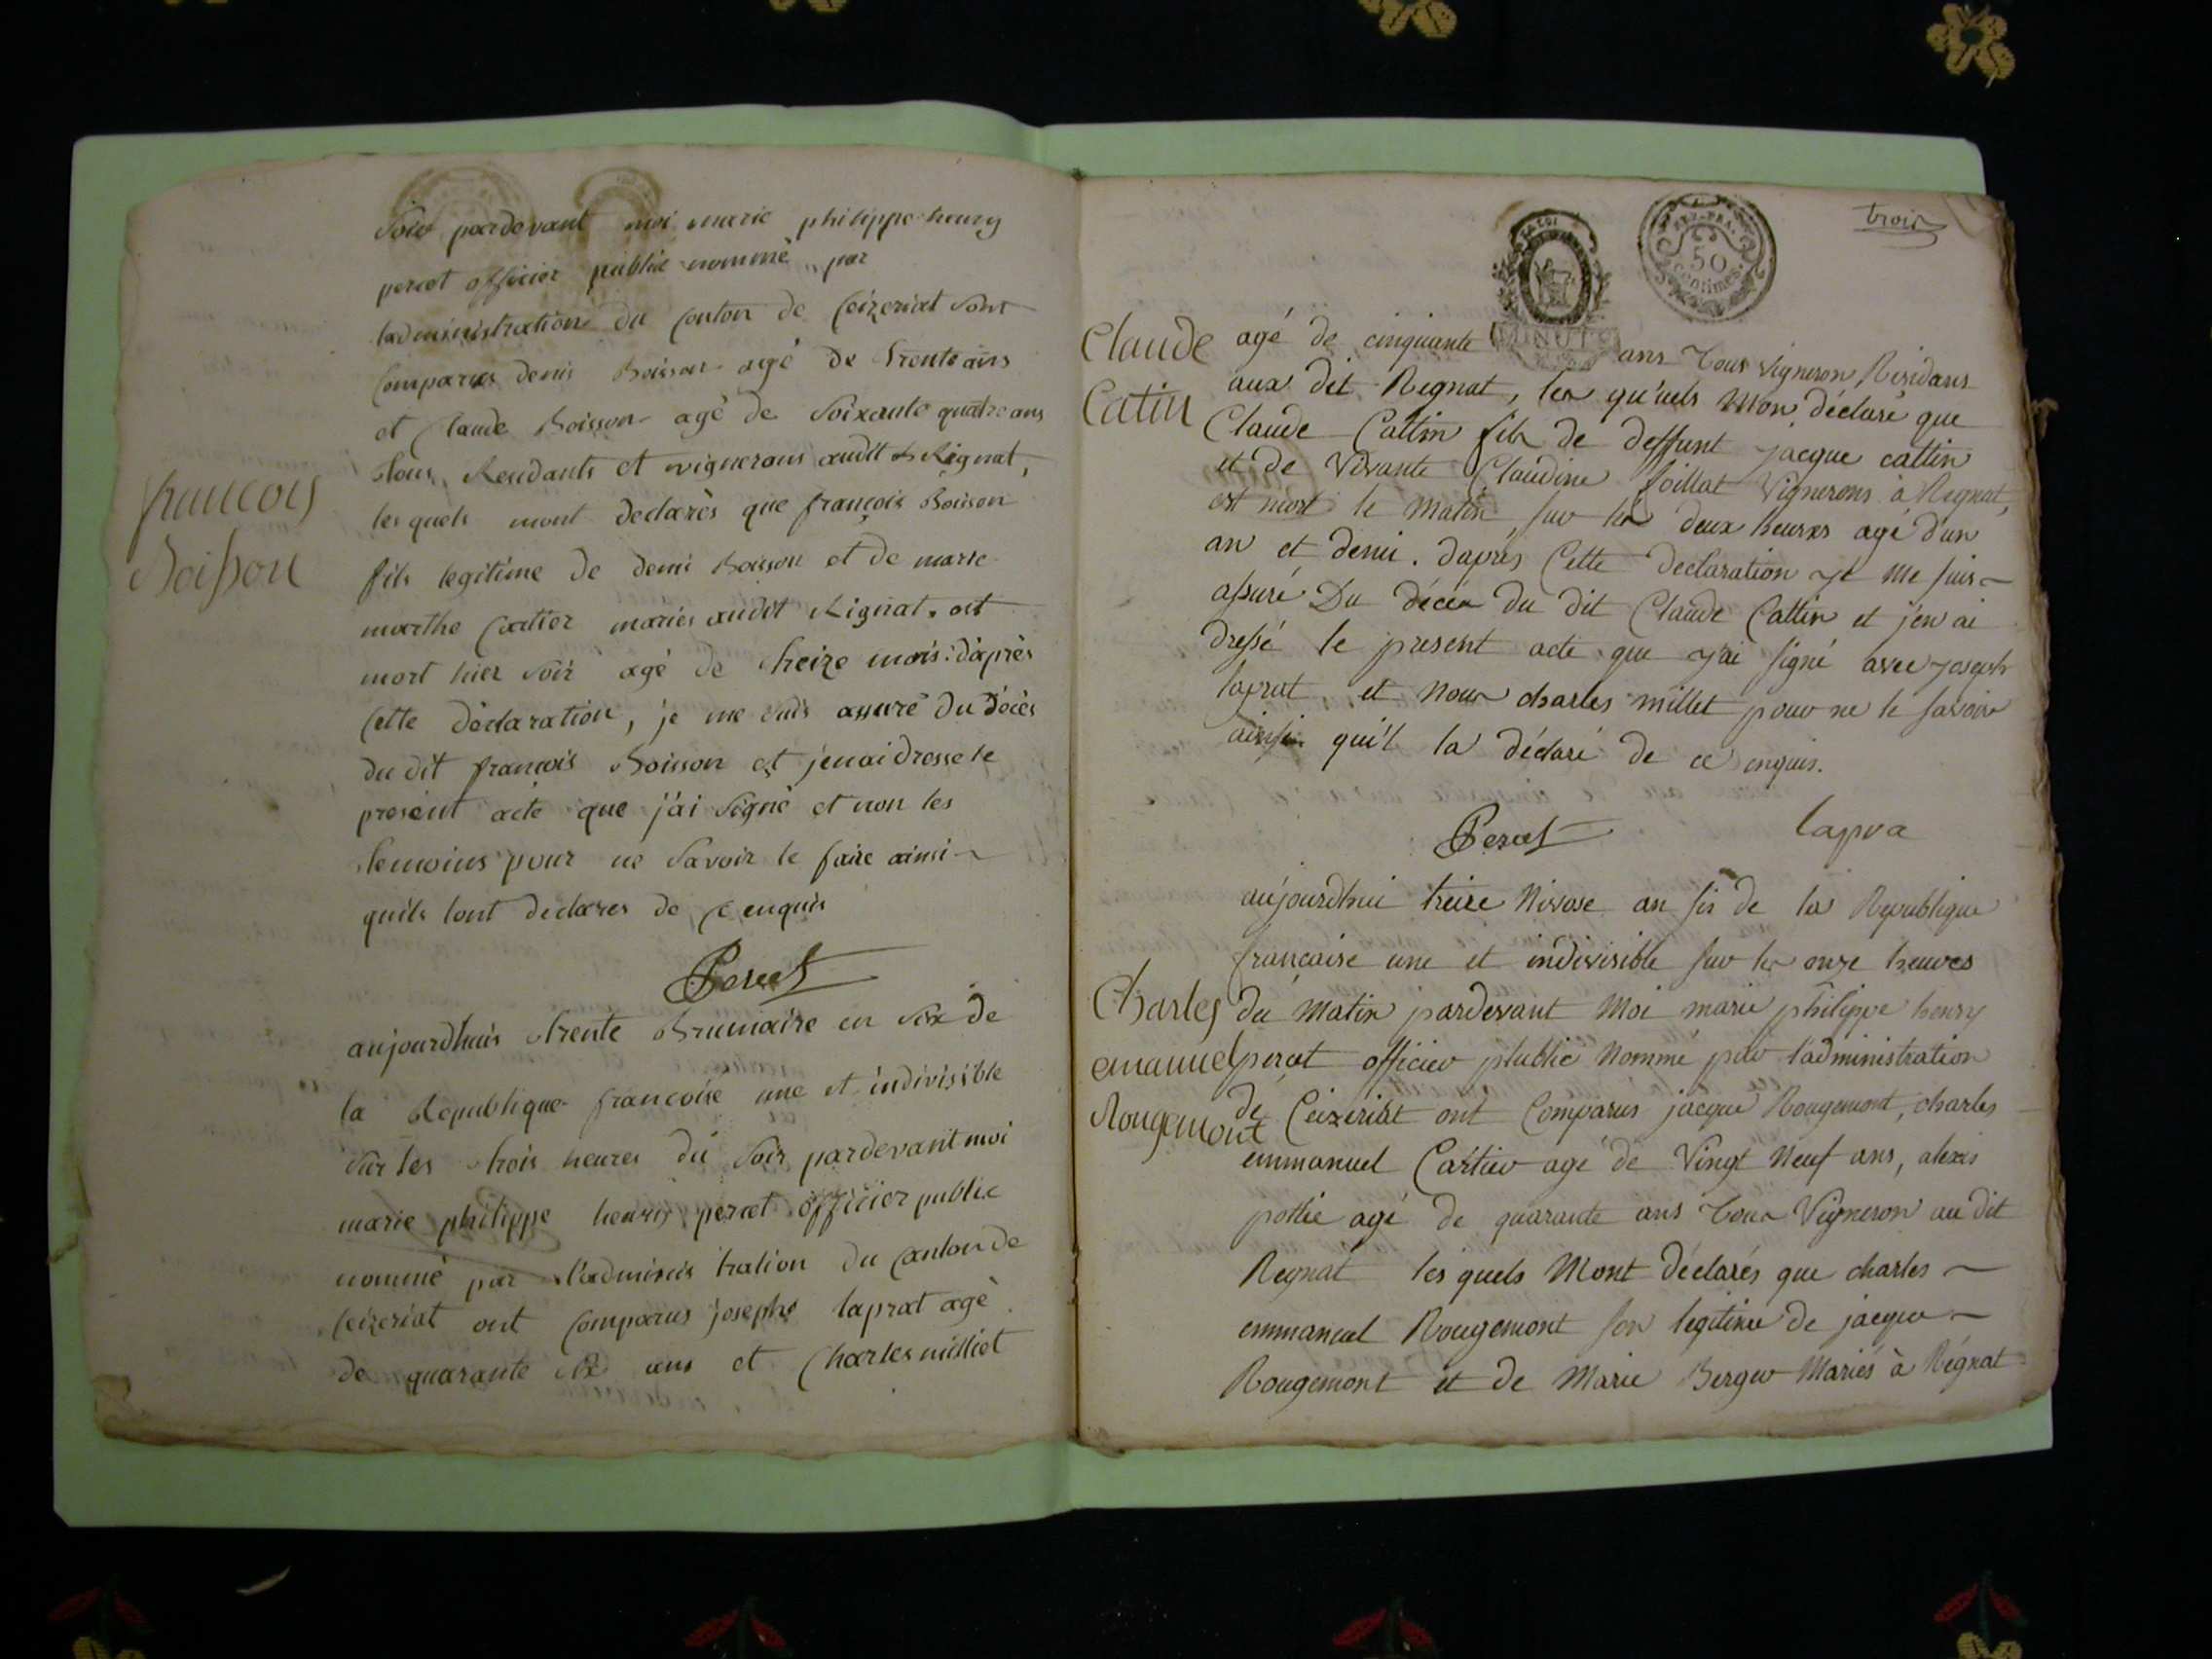 soir pardevant moi marie philippe henry
percet officier public nommé par
ladministration du Conton de Ceizeriat sont
Comparus denis Boisson agé de trente ans
et Claude Boisson agé de soixante quatre ans
tous Residants et vignerons audit Rignat,
les quels mont declarés que françois Boisson
francois
Boisson
fils legitime de denis Boisson et de marie
marthe Cartier mariés audit Rignat, est
mort hier soir agé de treize mois. d'après
Cette déclaration, je me suis assuré du décès
du dit françois Boisson et j'enai dresse le
present acte que j'ai signé et non les
temoins pour ne savoir le faire ainsi
quils lont declarer de ce enquis
Percet
aujourdhuis trente Brumaire en six de
la Republique francoise une et indivisible
sur les trois heures du soir pardevant moi
marie philippe henry percet officier public
nommé par l'adminis tration du Canton de
Ceizeriat ont Comparus josephe laprat agé
de quarante six ans et Charles milliet
trois
REP. FRA.
50
Centimes
Claude
Catin
agé de cinquante ans Tous vigneron Residans
aux dit Regnat, les qu'uels M'on déclaré que
Claude Cattin fils de deffunt jacque cattin
et de vivante Claudine foillat vignerons à Regnat,
est mort le matin sur les deux heures agé d'un
an et demi. dapres Cette declaration je me suis
assuré Du décès du dit Claude Cattin et j'en ai
dressé le present acte que j'ai signé avec joseph
laprat et nour charles millet pour ne le savoir
ainsi qui'l la déclaré de ce enquis.
Percet lapra
aujourdhui treize Nivose an six de la Republique
francaise une et indivisible sur les onze heures
Charles
emanuel
Rougemont
du matin pardevant Moi marie philippe henry
percet officier plublic Nommé par l'administration
de Ceizeriat ont Comparus jacque Rougemont, charles
emmanuel Cartier agé de Vingt Neuf ans, alexis
pothe agé de quarante ans Tous Vigneron au dit
Regnat les quels Mont déclarés que charles
emmanuel Rougemont son legitime de jacque
Rougemont et de Marie Berger Mariés à Régnat